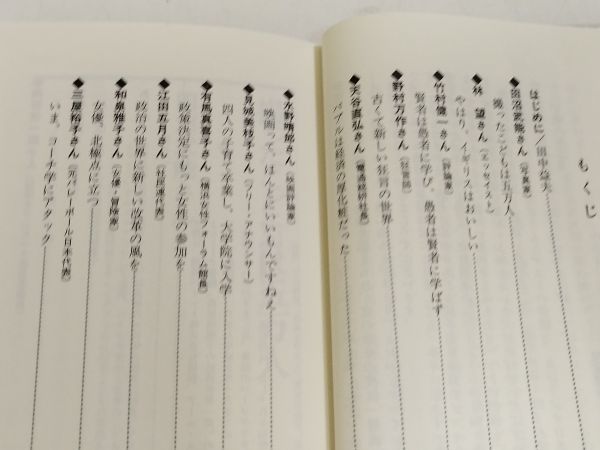 もくじ
はじめに/田中益夫
◆田沼武能さん(写真家)
撮ったこどもは五万人
◆林 望さん(エッセイスト)
やはり、イギリスはおいしい
◆竹村健一さん(評論家)
賢者は愚者に学び、愚者は賢者に学ばず
◆野村万作さん(狂言師)
古くて新しい狂言の世界
◆天谷直弘さん(電通総研社長)
バブルは経済の厚化粧だった
◆水野晴郎さん(映画評論家)
映画って、ほんとにいいもんですねえ
◆見城美枝子さん(フリー・アナウンサー)
四人の子育て卒業し、大学院に入学
◆有馬真喜子さん(横浜女性フォーラム館長)
政策決定にもっと女性の参加を
◆江田五月さん(社民連代表)
政治の世界に新しい改革の風を
◆和泉雅子さん(女優・冒険家)
女優、北極点に立つ
◆三屋裕子さん(元バレーボール日本代表)
いま、コーチ学にアタック